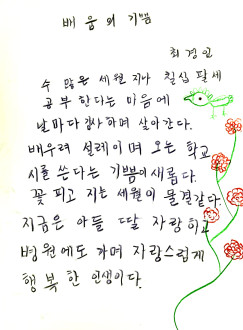 배움의 기쁨
최경인
수 많은 세월 지나 칠십 팔세
공부한다는 마음에
날마다 감사하며 살아간다.
배우려 설레이며 오는 학교
시를 쓴다는 기쁨이 새롭다.
꽃 피고 지는 세월이 물결같다.
지금은 아들 딸 자랑하고
병원에도 가며 자랑스럽게
행복한 인생이다.